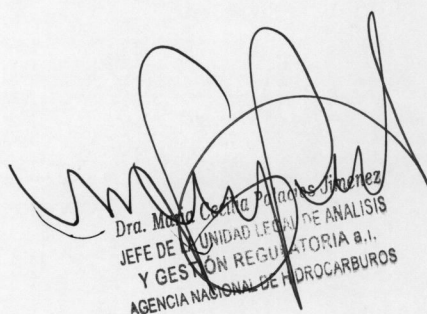 Dra. Maria Cecilia Palacios Jimenez
JEFE DE LA UNIDAD LEGAL DE ANALISIS
Y GESTIÓN REGULATORIA a.i.
AGENCIA NACIONAL DE HIDROCARBUROS